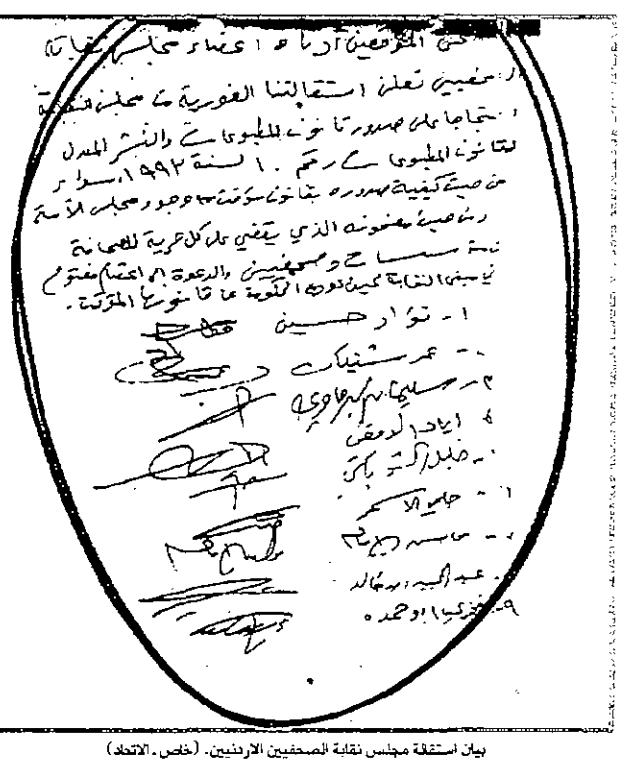 نحن الموقعين أدناه اعضاء مجلس نقابة
الصحفيين نعلن استقالتنا الفورية من مجلس النقابة
احتجاجا على صدور قانون المطبوعات والنشر المعدل
لقانون المطبوعات رقم ١٠ لسنة ١٩٩٣، سواء
من حيث كيفية صدوره بقانون مؤقت مع وجود مجلس الأمة
ومن حيث مضمونه الذي يقضي على كل حرية للصحافة
وصحفيين والدعوة الى اعتصام مفتوح
في مبنى النقابة لحين عودة الحكومة عن قانونها المؤقت.
١- فؤاد حسين
عمر
٣- سليمان
٤ اياد
خليل
الاسمر
عبد خالد
٩- ابو حمده
بيان استقالة مجلس نقابة الصحفيين الاردنيين. (خاص ـ الاتحاد)